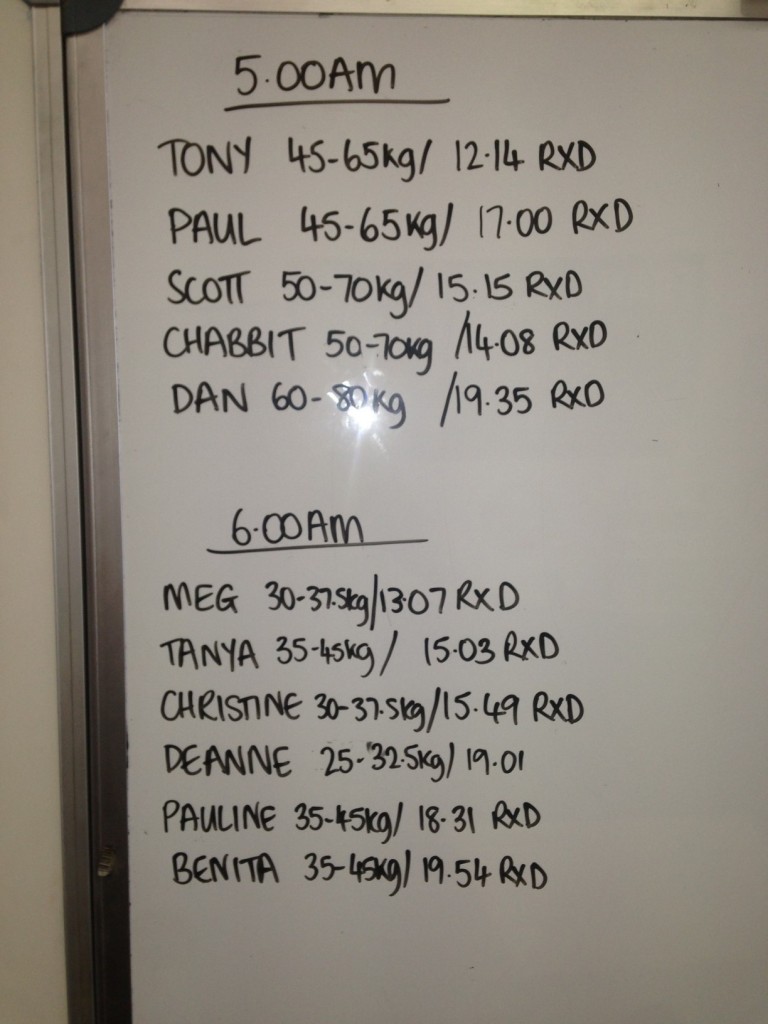 5.00AM
TONY 45-65kg/ 12.14 RXD
PAUL 45-65kg/ 17.00 RXD
SCOTT 50-70kg/ 15.15 RXD
CHABBIT 50-70kg /14.08 RXD
DAN 60-80kg /19.35 RXD
6.00AM
MEG 30-37.5kg/13.07 RXD
TANYA 35-45kg/ 15.03 RXD
CHRISTINE 30-37.5kg/15.49 RXD
DEANNE 25-32.5kg/ 19.01
PAULINE 35-45kg/ 18.31 RXD
BENITA 35-45kg/ 19.54 RXD